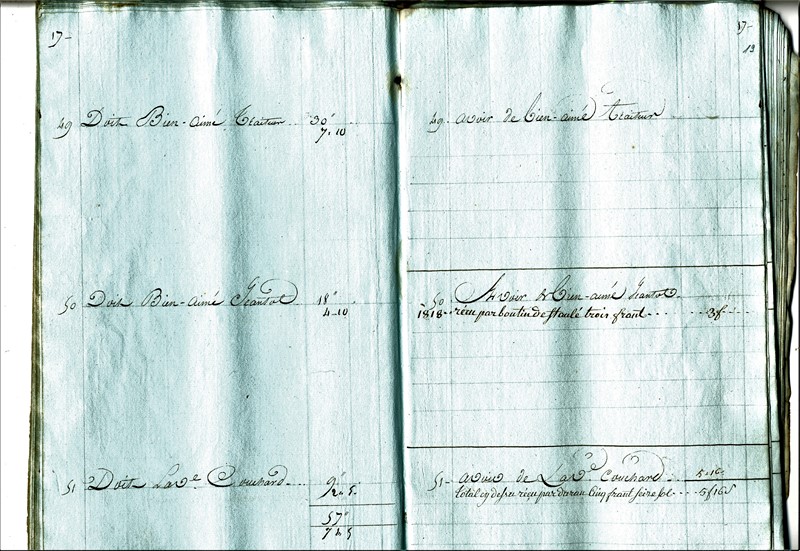 17-
49 Doit Bien-aimé Traiteur 30"
7. 10
50 Doit Bien-aimé Jeantot 18"
4-10
51 Doit La Ve Couchard 9"
57"
17-
13
49 avoir de Bien-aimé Traiteur
50 Avoir de Bien-aimé Jeantot
1818- recu par boutin de trois frant 3f
51- avoir de La Ve Couchard 5-16
total cy desu recu par cinq frant seize sol 5f16s